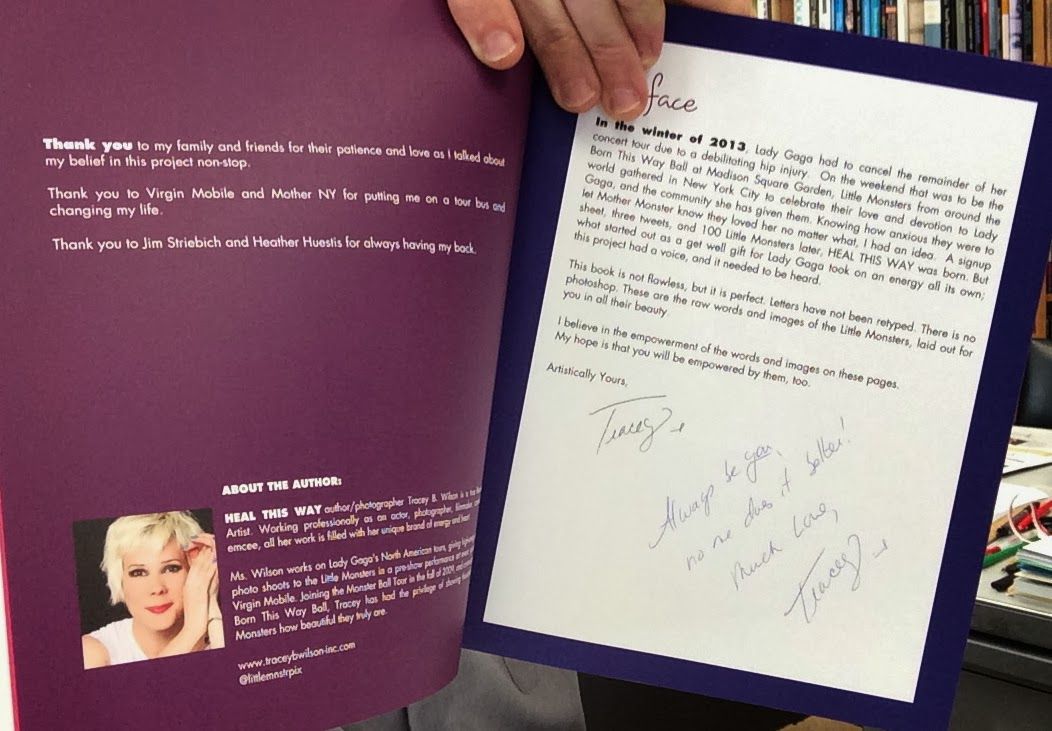 Thank you to my family and friends for their patience and love as I talked about
my belief in this project non-stop.
Thank you to Virgin Mobile and Mother NY for putting me on a tour bus and
changing my life.
Thank you to Jim Striebich and Heather Huestis for always having my back.
ABOUT THE AUTHOR:
HEAL THIS WAY author/photographer Tracey B. Wilson is a true
Artist. Working professionally as an actor, photographer, filmmaker and
emcee, all her work is filled with her unique brand of energy and heart.
Ms. Wilson works on Lady Gaga's North American tours, giving
photo shoots to the Little Monsters in a pre-show performance art event
Virgin Mobile. Joining the Monster Ball Tour in the fall of 2009, and
Born This Way Ball, Tracey has had the privilege of showing
Monsters how beautiful they truly are.
www.traceybwilson-inc.com
@littlemnstrpix
face
In the winter of 2013, Lady Gaga had to cancel the remainder of her
concert tour due to a debilitating hip injury. On the weekend that was to be the
Born This Way Ball at Madison Square Garden, Little Monsters from around the
world gathered in New York City to celebrate their love and devotion to Lady
Gaga, and the community she has given them. Knowing how anxious they were to
let Mother Monster know they loved her no matter what, I had an idea. A signup
sheet, three tweets, and 100 Little Monsters later, HEAL THIS WAY was born. But
what started out as a get well gift for Lady Gaga took on an energy all its own;
this project had a voice, and it needed to be heard.
This book is not flawless, but it is perfect. Letters have not been retyped. There is no
photoshop. These are the raw words and images of the Little Monsters, laid out for
you in all their beauty.
I believe in the empowerment of the words and images on these pages.
My hope is that you will be empowered by them, too.
Artistically Yours,
Tracey
Always be you,
no one does it better!
Much Love,
Tracey